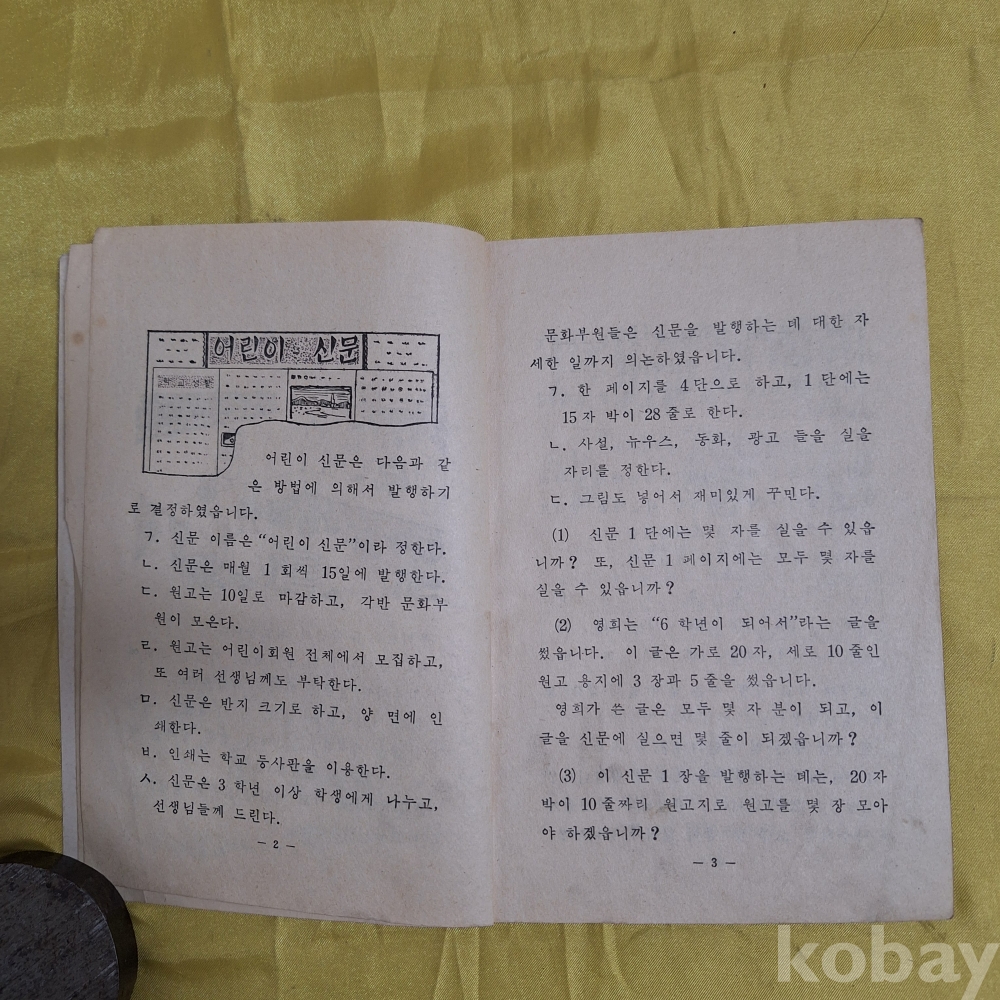 어린이 신문
학교생활
어린이 신문은 다음과 같
은 방법에 의해서 발행하기
로 결정하였읍니다.
ㄱ. 신문 이름은 “어린이 신문”이라 정한다.
ㄴ. 신문은 매월 1 회씩 15일에 발행한다.
ㄷ. 원고는 10일로 마감하고, 각반 문화부
원이 모은다.
ㄹ. 원고는 어린이회원 전체에서 모집하고,
또 여러 선생님께도 부탁한다.
ㅁ. 신문은 반지 크기로 하고, 양 면에 인
쇄한다.
ㅂ. 인쇄는 학교 등사판을 이용한다.
ㅅ. 신문은 3 학년 이상 학생에게 나누고,
선생님들께 드린다.
— 2 —
문화부원들은 신문을 발행하는 데 대한 자
세한 일까지 의논하였읍니다.
ㄱ. 한 페이지를 4 단으로 하고, 1 단에는
15 자 박이 28 줄로 한다.
ㄴ. 사설, 뉴우스, 동화, 광고 들을 실을
자리를 정한다.
ㄷ. 그림도 넣어서 재미있게 꾸민다.
(1) 신문 1 단에는 몇 자를 실을 수 있읍
니까? 또, 신문 1 페이지에는 모두 몇 자를
실을 수 있읍니까?
(2) 영희는 “6 학년이 되어서”라는 글을
썼읍니다. 이 글은 가로 20 자, 세로 10 줄인
원고 용지에 3 장과 5 줄을 썼읍니다.
영희가 쓴 글은 모두 몇 자 분이 되고, 이
글을 신문에 실으면 몇 줄이 되겠읍니까?
(3) 이 신문 1 장을 발행하는 데는, 20 자
박이 10 줄짜리 원고지로 원고를 몇 장 모아
야 하겠읍니까?
— 3 —
kobay